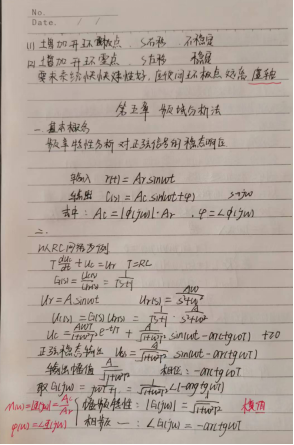 No.
Date.
(1) 增加开环极点 S右移 不稳定
(2) 增加开环零点 S左移 稳定
要求系统快速性好,
第五章 频域分析法
一. 基本概念
频率特性分析 对正弦信号的稳态响应
输入 r(t) = Ar sinωt
输出 C(s) = Ac sin(ωt+φ) s→jω
式中: Ac = |φ(jω)|·Ar , φ = ∠φ(jω)
二.
以RC网络为例
T duc/dt + uc = ur T=RC
G(s) = Uc(s)/Ur(s) = 1/(Ts+1)
Ur = A sinωt Ur(s) = Aω/(s²+ω²)
Uc(s) = G(s) Ur(s) = 1/(Ts+1) · Aω/(s²+ω²)
Uc = AωT/(1+ω²T²) e^(-t/T) + A/√(1+ω²T²) sin(ωt - arctgωT) t≥0
正弦稳态输出 Uos = A/√(1+ω²T²) sin(ωt - arctgωT)
输出幅值 A/√(1+ω²T²) 相位: -arctgωT
取G(jω) = 1/(jωT+1) = 1/√(1+ω²T²) ∠(-arctgωT)
M(ω) = |φ(jω)| = Ac/Ar 幅频特性: |G(jω)| = 1/√(1+ω²T²)
φ(ω) = ∠φ(jω) 相频 — : ∠G(jω) = -arctgωT